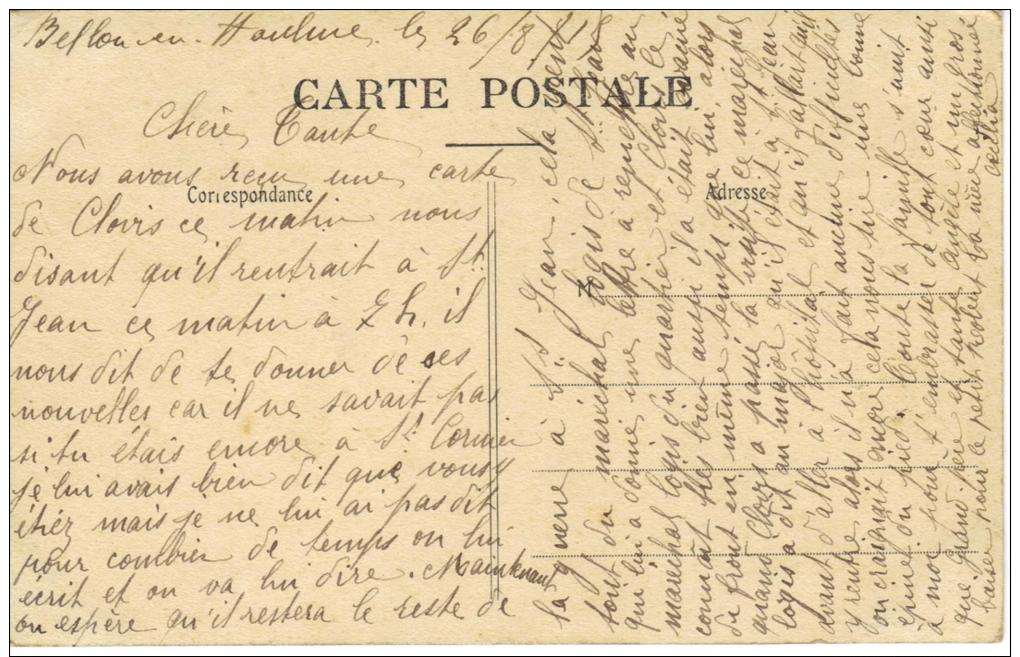 Bellou-en-Houlme le 26/8/1
CARTE POSTALE
Chère Tante
Nous avons reçu une carte
Correspondance
Adresse
de Clovis ce matin nous
disant qu'il rentrait à St
Jean ce matin à 7 h, il
nous dit de te donner de ses
nouvelles car il ne savait pas
si tu étais encore à St Cornier
je lui avais bien dit que vous y
étiez mais je ne lui ai pas dit
pour combien de temps on lui
écrit et on va lui dire. Maintenant
on espère qu'il restera le reste de
la guerre à St Jean, cela
tout du maréchal logis de St
qui lui a donné une lettre à remettre au
maréchal logis du quartier et Clovis le
connaît très bien aussi il a était
du front en même temps que lui alors
quand Clovis a passé la visite ce maréchal
logis a dit au major qu'il était à St Jean
avant d'aller à l'hôpital et qu'il fallait qu'il
y rentre alors il n'a fait aucune difficultés
on craignait encore cela nous tire une bonne
épine du pied. Toute la famille s'unit
à moi pour t'embrasser de tout cœur ainsi
que grand père et tante Angèle et un gros
baiser pour le petit Robert ta nièce affectionnée